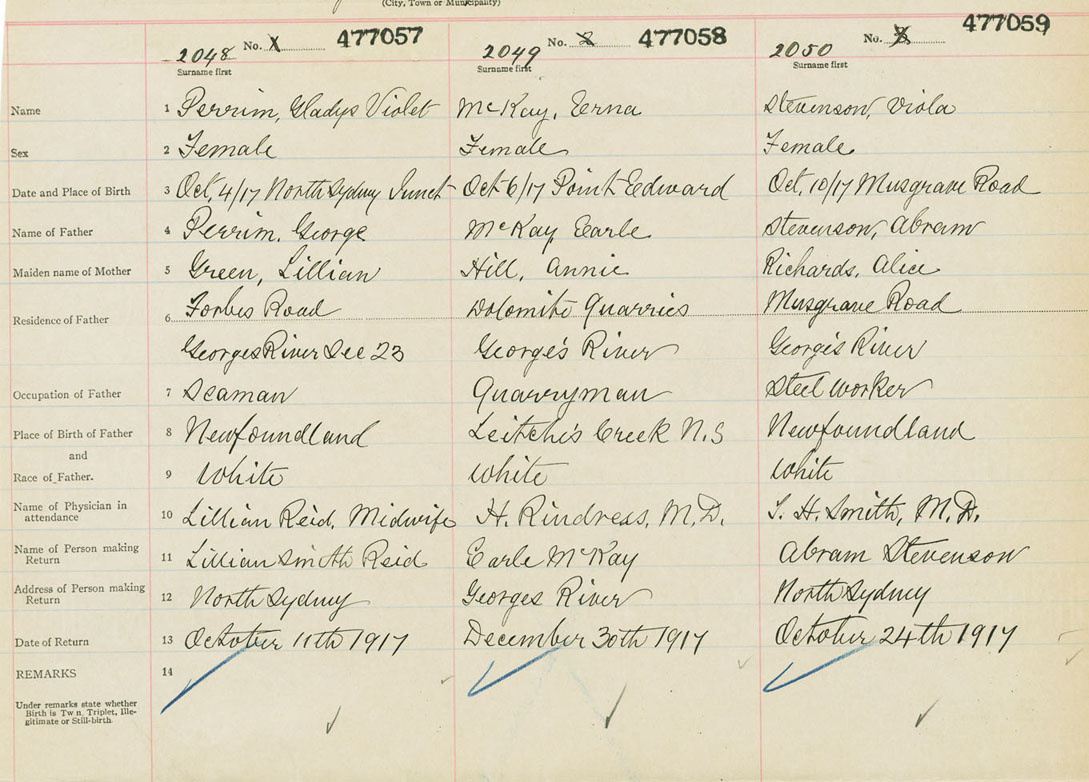 (City, Town or Municipality)
2048 No. 1 477057 2049 No. 2 477058 2050 No. 3 477059
Surname first Surname first Surname first
Name 1 Perrim, Gladys Violet McKay, Erna Stevenson, Viola
Sex 2 Female Female Female
Date and Place of Birth 3 Oct, 4/17 North Sydney Junct Oct 6/17 Point Edward Oct, 10/17 Musgrave Road
Name of Father 4 Perrim, George McKay, Earle Stevenson, Abram
Maiden name of Mother 5 Green, Lillian Hill, Annie Richards, Alice
Residence of Father 6 Forbes Road Dolomite Quarries Musgrave Road
Georges River Sec 23 George's River George's River
Occupation of Father 7 Seaman Quarryman Steel Worker
Place of Birth of Father 8 Newfoundland Leitche's Creek N.S Newfoundland
and
Race of Father. 9 White White White
Name of Physician in attendance 10 Lillian Reid, Midwife H. Rindress, M.D. S. H. Smith, M.D.
Name of Person making Return 11 Lillian Smith Reid Earle McKay Abram Stevenson
Address of Person making Return 12 North Sydney Georges River North Sydney
Date of Return 13 October 11th 1917 December 30th 1917 October 24th 1917
REMARKS 14
Under remarks state whether
Birth is Twn, Triplet, Ille-
gitimate or Still-birth.